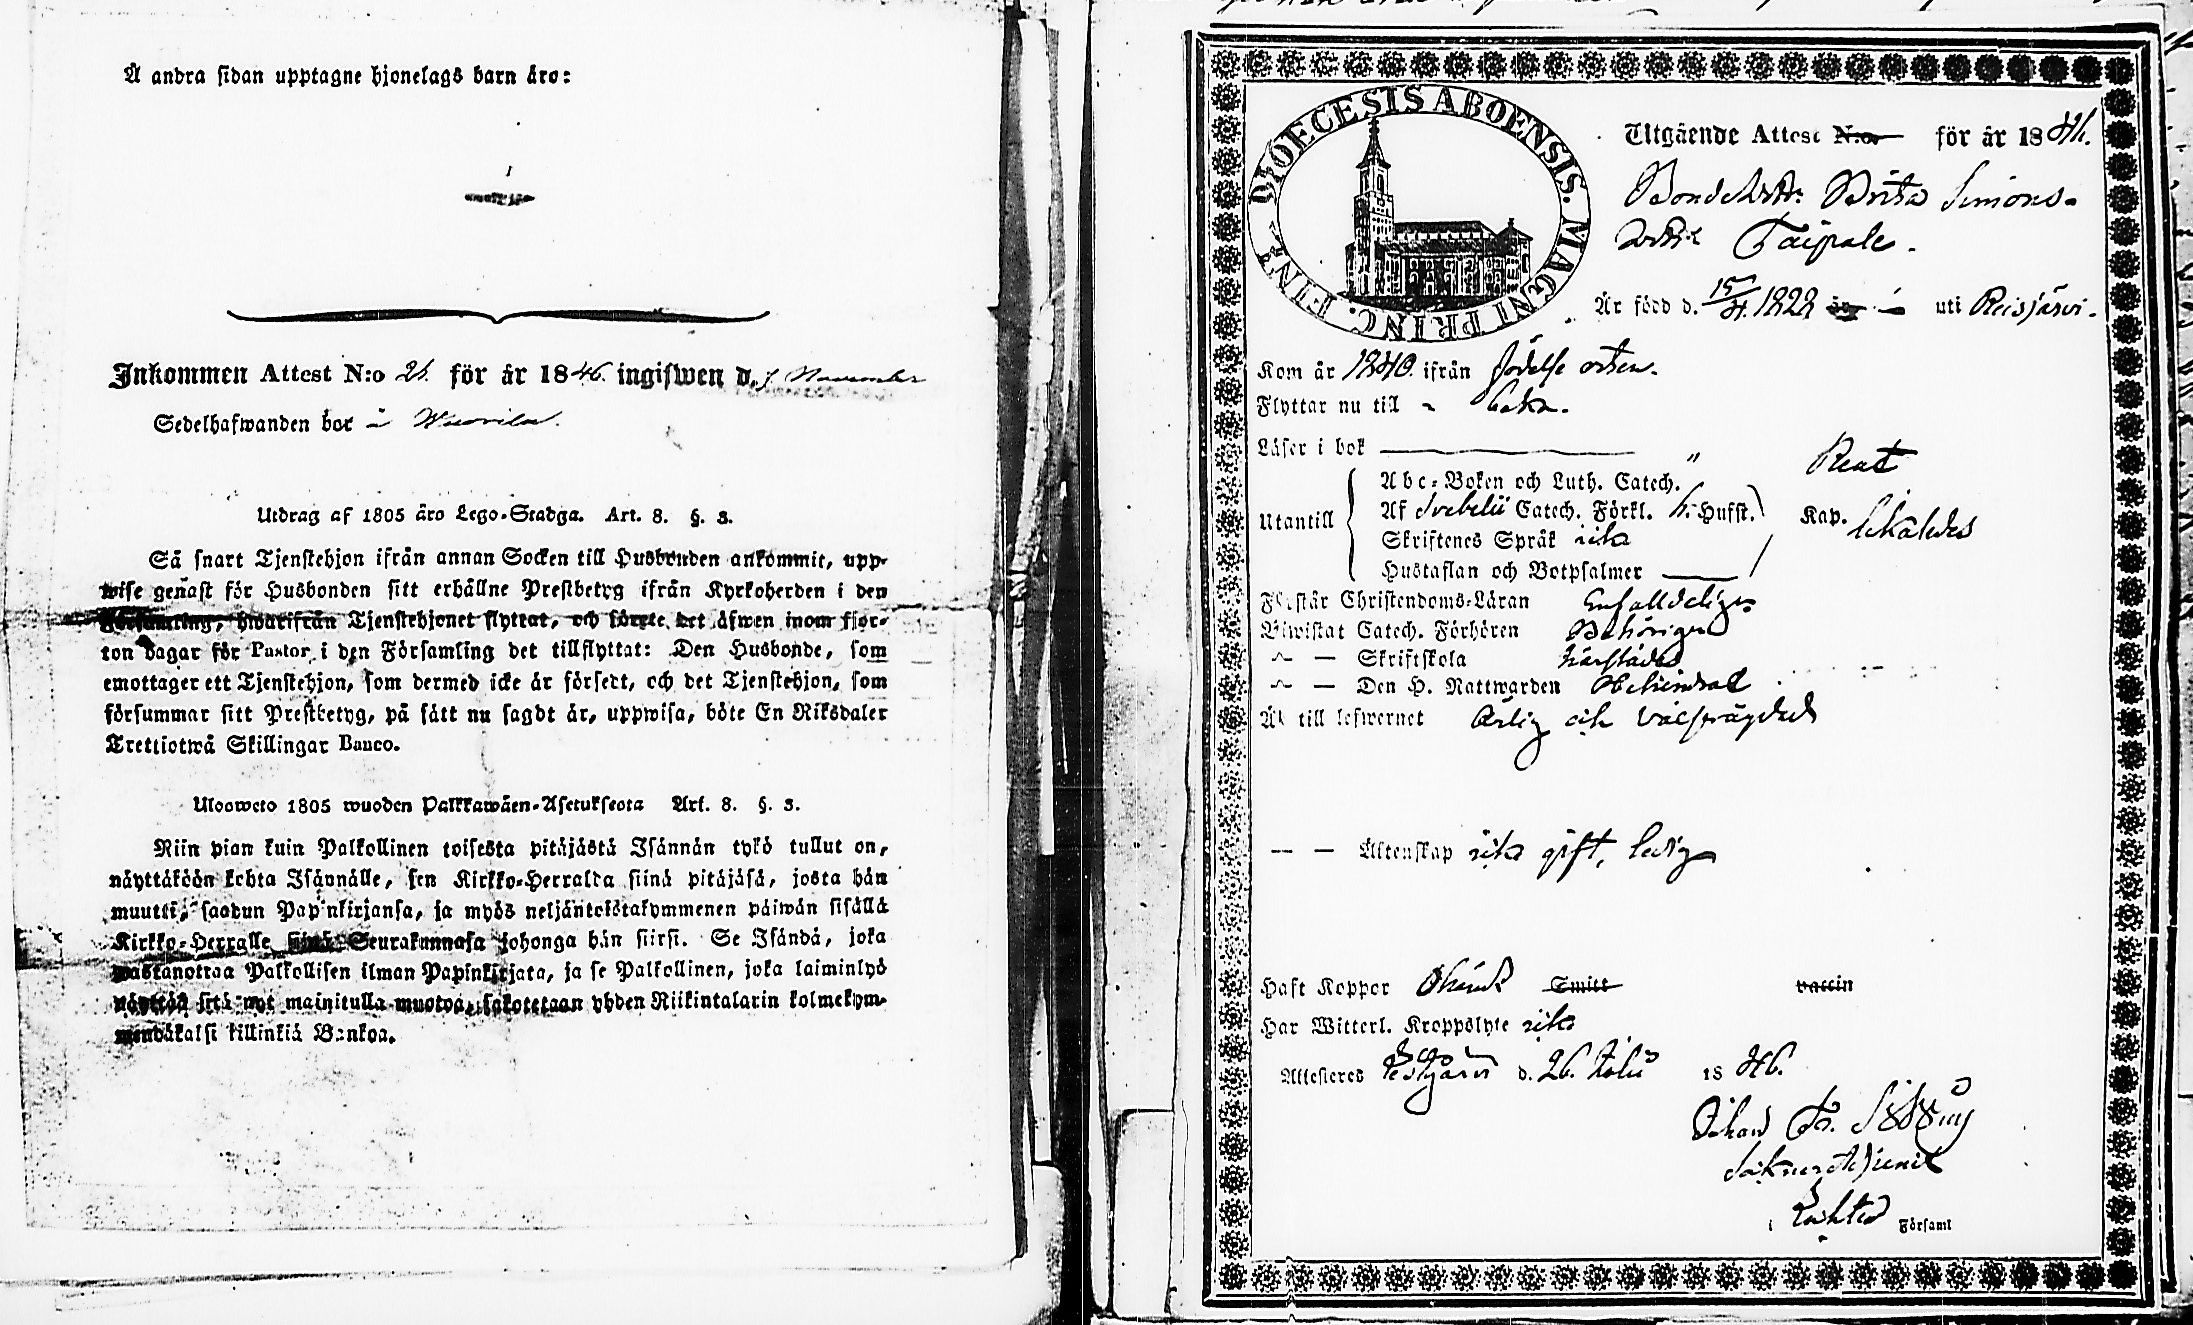 Å andra sidan upptagne hjonelags barn äro:
Inkommen Attest N:o 21. för år 1846. ingifwen d. 7 November
Sedelhafwanden bor å Wuorila.
Utdrag af 1805 års Lego-Stadga. Art. 8. §. 3.
Så snart Tjenstehjon ifrån annan Socken till Husbonden ankommit, upp-
wise genast för Husbonden sitt erhållne Prestbetyg ifrån Kyrkoherden i den
Församling, hwarifrån Tjenstehjonet flyttat, och förete det äfwen inom fjor-
ton dagar för Pastor i den Församling det tillflyttat: Den Husbonde, som
emottager ett Tjenstehjon, som dermed icke är försedt, och det Tjenstehjon, som
försummar sitt Prestbetyg, på sätt nu sagdt är, uppwisa, böte En Riksdaler
Trettiotwå Skillingar Banco.
Ulosweto 1805 wuoden Palkkawäen-Asetuksesta Art. 8. §. 3.
Niin pian kuin Palkollinen toisesta pitäjästä Isännän tykö tullut on,
näyttäköön kohta Isännälle, sen Kirkko-Herralda siinä pitäjäsä, josta hän
muutti, saadun Papinkirjansa, ja myös neljäntoistakymmenen päiwän sisällä
Kirkko-Herralle siinä Seurakunnasa johonga hän siirsi. Se Isändä, joka
wastanottaa Palkollisen ilman Papinkirjata, ja se Palkollinen, joka laiminlyö
näyttää sitä nyt mainitulla muotoa, sakotetaan yhden Riikintalarin kolmekym-
mendäkaksi killinkiä Bankoa.
DIOECESIS ABOENSIS. MAGNI PRINC. FINL.
Utgående Attest N:o för år 1846.
Bondedottr. Brita Simons-
dottr Taipale.
Är född d. 15/4 1822 uti Reisjärvi.
Kom år 1840. ifrån födelse orten.
Flyttar nu till
Läser i bok Rent
Abc-Boken och Luth. Catech. "
Utantill Af Svebelii Catech. Förkl. Hufst. Kap.
Skriftenes Språk icke
Hustaflan och Botpsalmer
Förstår Christendoms-Läran Enfaldeligen
Biwistat Catech. Förhören Behörigen
— Skriftskola härstädes
— Den H. Nattwarden Obehindrad
Är till lefwernet Ärlig och välfrägdad
— — Äktenskap icke gift, ledig
Haft Koppor Okändt Smitt vaccin
Har Witterl. Kroppslyte icke
Attesteres d. 26. Julii 1846.
Johan
i Församl